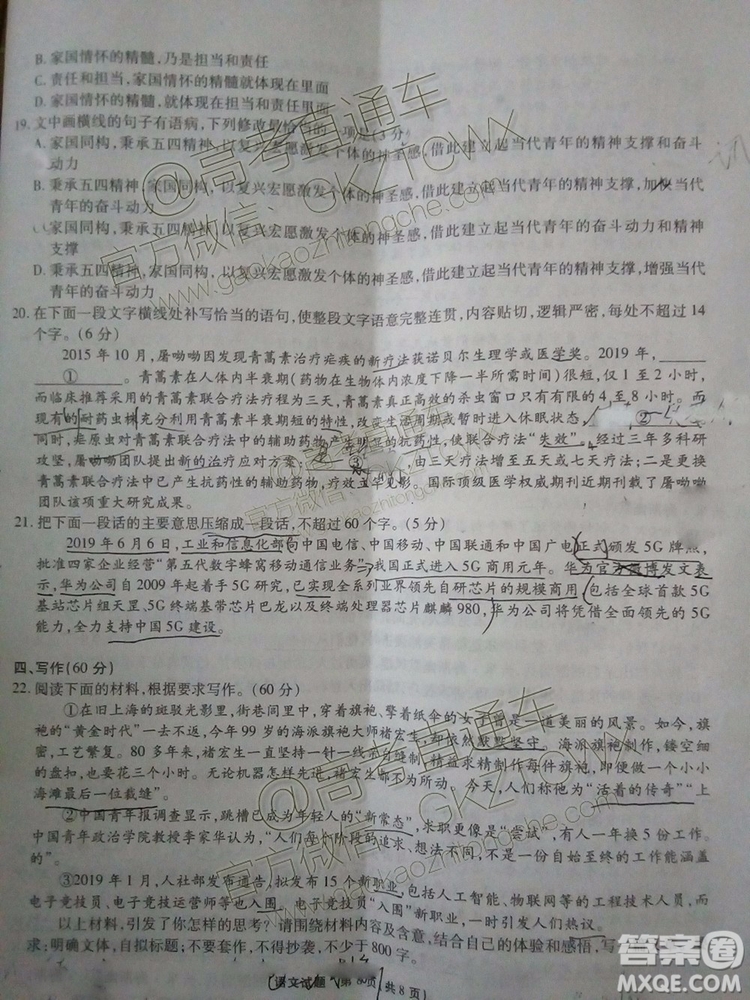 B. 家国情怀的精髓,乃是担当和责任
C. 责任和担当,家国情怀的精髓就体现在里面
D. 家国情怀的精髓,就体现在担当和责任里面
19. 文中画横线的句子有语病,下列修改最恰当的一项是(3分)
A. 家国同构,秉承五四精神,以复兴宏愿激发个体的神圣感,借此建立起当代青年的精神支撑和奋斗
动力
B. 秉承五四精神,家国同构,以复兴宏愿激发个体的神圣感,借此建立起当代青年的精神支撑,加快当代
青年的奋斗动力
C. 家国同构,秉承五四精神,以复兴宏愿激发个体的神圣感,借此建立起当代青年的奋斗动力和精神
支撑
D. 秉承五四精神,家国同构,以复兴宏愿激发个体的神圣感,借此建立起当代青年的精神支撑,增强当代
青年的奋斗动力
20. 在下面一段文字横线处补写恰当的语句,使整段文字语意完整连贯,内容贴切,逻辑严密,每处不超过14
个字。(6分)
2015年10月,屠呦呦因发现青蒿素治疗疟疾的新疗法获诺贝尔生理学或医学奖。2019年,
①。青蒿素在人体内半衰期(药物在生物体内浓度下降一半所需时间)很短,仅1至2小时,
而临床推荐采用的青蒿素联合疗法疗程为三天,青蒿素真正高效的杀虫窗口只有有限的4至8小时。而
现有的耐药虫株充分利用青蒿素半衰期短的特性,改变生活周期或暂时进入休眠状态,②
同时,疟原虫对青蒿素联合疗法中的辅助药物产生明显的抗药性,使联合疗法“失效”。经过三年多科研
攻坚,屠呦呦团队提出新的治疗应对方案:
青蒿素联合疗法中已产生抗药性的辅助药物,疗效立竿见影。国际顶级医学权威期刊近期刊载了屠呦呦
团队该项重大研究成果。
21. 把下面一段话的主要意思压缩成一段话,不超过60个字。(5分)
2019年6月6日,工业和信息化部向中国电信、中国移动、中国联通和中国广电正式颁发5G牌照,
批准四家企业经营“第五代数字蜂窝移动通信业务”,我国正式进入5G商用元年。华为官方微博发文表
示,华为公司自2009年起着手5G研究,已实现全系列业界领先自研芯片的规模商用,包括全球首款5G
基站芯片组天罡、5G终端基带芯片巴龙以及终端处理器芯片麒麟980,华为公司将凭借全面领先的5G
能力,全力支持中国5G建设。
四、写作(60分)
22. 阅读下面的材料,根据要求写作。(60分)
①在旧上海的斑驳光影里,街巷间里,穿着旗袍,擎着纸伞的女子曾是一道美丽的风景。如今,旗
袍的“黄金时代”一去不复返,今年99岁的海派旗袍大师褚宏生,却依然默默坚守。海派旗袍制作,镂空细
密,工艺繁复。80多年来,褚宏生一直坚持一针一线
的盘扣,他也要花费3个小时。无论机器怎样先进,褚宏生都不为所动。今天,人们称他为“活着的传奇”“上
海滩最后一位裁缝”。
②中国青年报调查显示,跳槽已成为年轻人的“新常态”,求职更像是“尝试”,有人一年换5份工作。
中国青年政治学院教授李家华认为,“人们每个阶段的追求、想法不同,不是一个自始至终的工作能涵盖
的。”
③2019年1月,人社部发布通告,拟发布15个新职业,包括人工智能、物联网等的工程技术人员,
电子竞技员、电子竞技运营师等也入围。电子竞技员“入围”新职业,一时间引发人们热议。
以上材料,引发了你怎样的思考?请围绕材料内容,结合自己的体验和感悟,写
求:明确文体,自拟标题;不要套作,不得抄袭,不少于800字。
语文试题 第8页(共8页)
@高考直通车
官方微信:GKZTCWX
www.gaokaozhitongche.com
答案圈
MXQE.COM